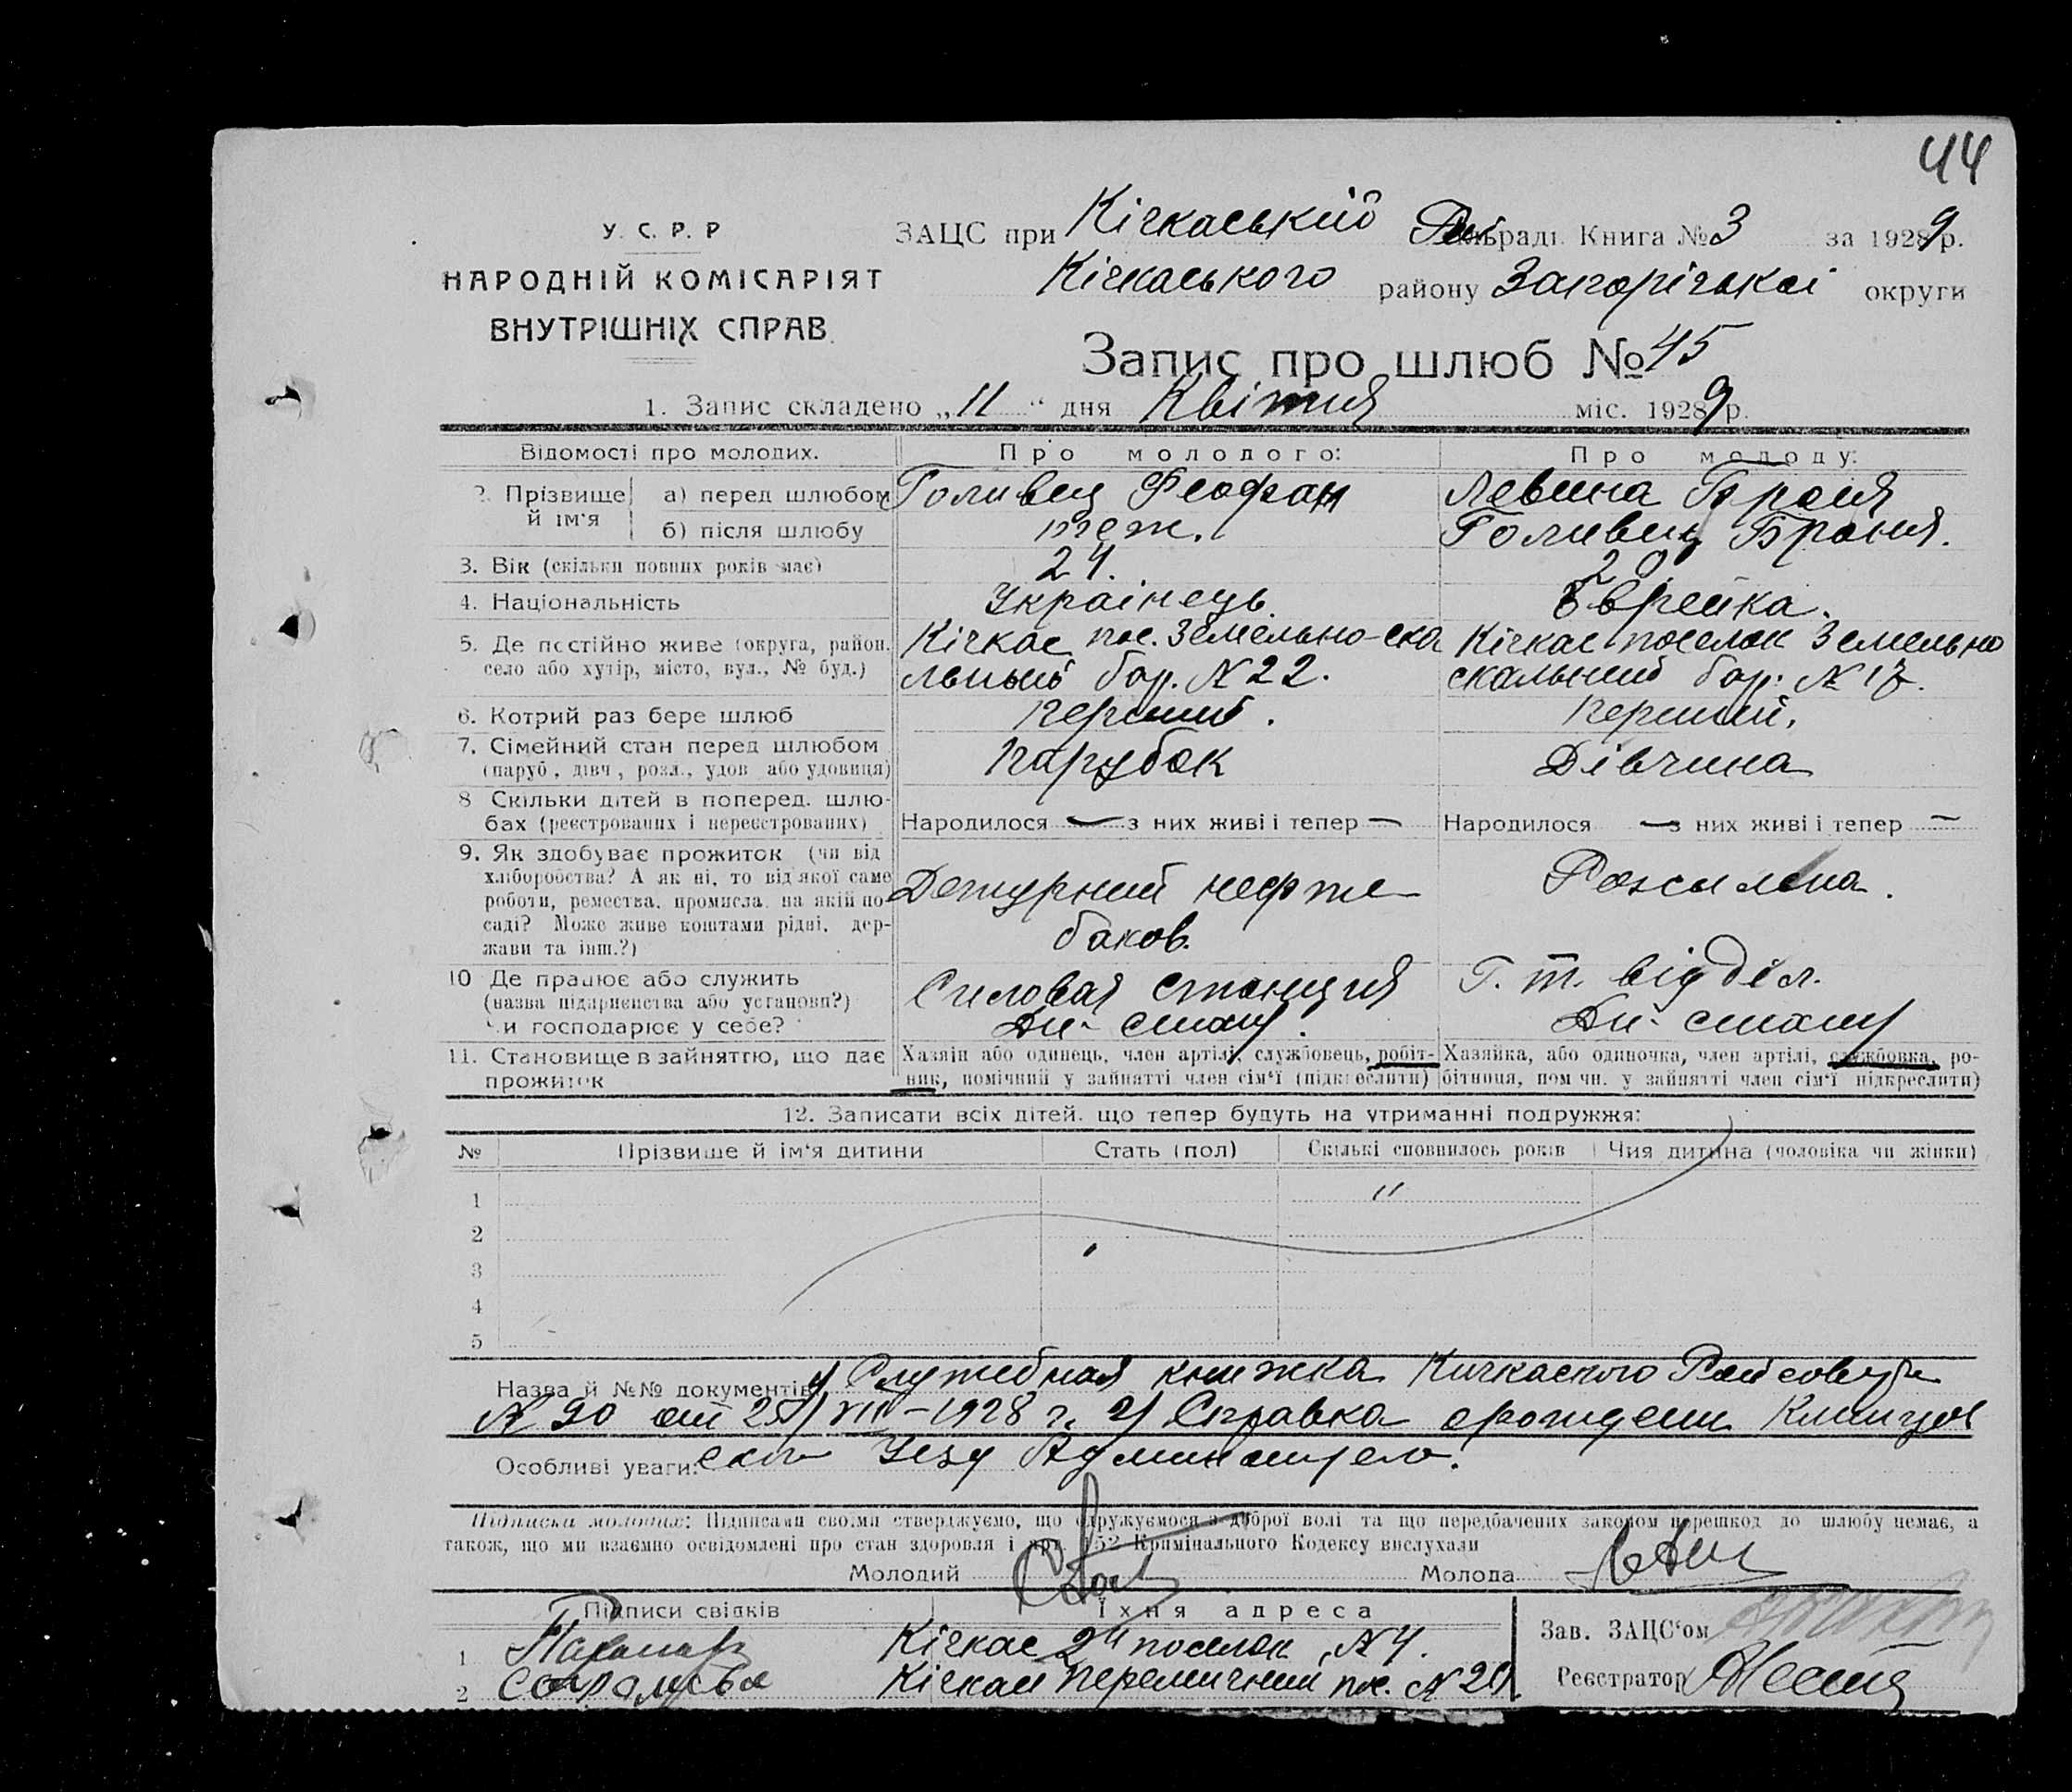 44
У. С. Р. Р
НАРОДНІЙ КОМІСАРІЯТ
ВНУТРІШНІХ СПРАВ
ЗАЦС при Кічкаський Райраді Книга № 3 за 1929 р.
Кічкаського району Запорізької округи
Запис про шлюб № 45
1. Запис складено „11“ дня Квітня міс. 1929 р.
Відомості про молодих. Про молодого: Про молоду:
2. Прізвище й ім'я а) перед шлюбом Голивец Феофан Левина Броня
б) після шлюбу теж. Голивец Броня.
3. Вік (скільки повних років має) 24. 20.
4. Національність Українець. Єврейка.
5. Де постійно живе (округа, район, Кічкас пос. Земельно-ска Кічкас поселок Земельно
село або хутір, місто, вул., № буд.) льний бар. № 22. скальний бар. № 17.
6. Котрий раз бере шлюб Перший. Перший.
7. Сімейний стан перед шлюбом Парубок Дівчина
(паруб., дівч., розл., удов. або удовиця)
8 Скільки дітей в поперед. шлю-
бах (реєстрованих і нереєстрованих) Народилося — з них живі і тепер — Народилося — з них живі і тепер —
9. Як здобуває прожиток (чи від
хліборобства? А як ні, то від якої саме Дежурний нефте Розсильна.
роботи, ремества, промисла, на якій по-
саді? Може живе коштами рідні, дер- баков.
жави та інш.?)
10 Де працює або служить Силовая станция Г. т. відділ.
(назва підприємства або установи?)
Чи господарює у себе? Дн-стану. Дн-стану
11. Становище в зайняттю, що дає Хазяїн або одинець, член артілі, службовець, робіт- Хазяйка, або одиночка, член артілі, службовка, ро-
прожиток ник, помічний у зайнятті член сім'ї (підкреслити) бітниця, пом чн. у зайнятті член сім'ї підкреслити)
12. Записати всіх дітей, що тепер будуть на утриманні подружжя:
№ Прізвище й ім'я дитини Стать (пол) Скількі сповнилось років Чия дитина (чоловіка чи жінки)
1 "
2
3
4
5
Назва й №№ документів 1) Служебная книжка Кичкаского Райсовета
№ 90 от VIII-1928 г. 2) Справка о рождени Клинцов
Особливі уваги: ского Уезд
Підписи молодих: Підписами своїми стверджуємо, що одружуємося з доброї волі та що передбачених законом перешкод до шлюбу немає, а
також, що ми взаємно освідомлені про стан здоровля і арт. 152 Кримінального Кодексу вислухали
Молодий Молода
Підписи свідків Їхня адреса
1 Кічкас 2й поселок № 4. Зав. ЗАЦС'ом
2 Кічкас Перемичний пос. № Реєстратор